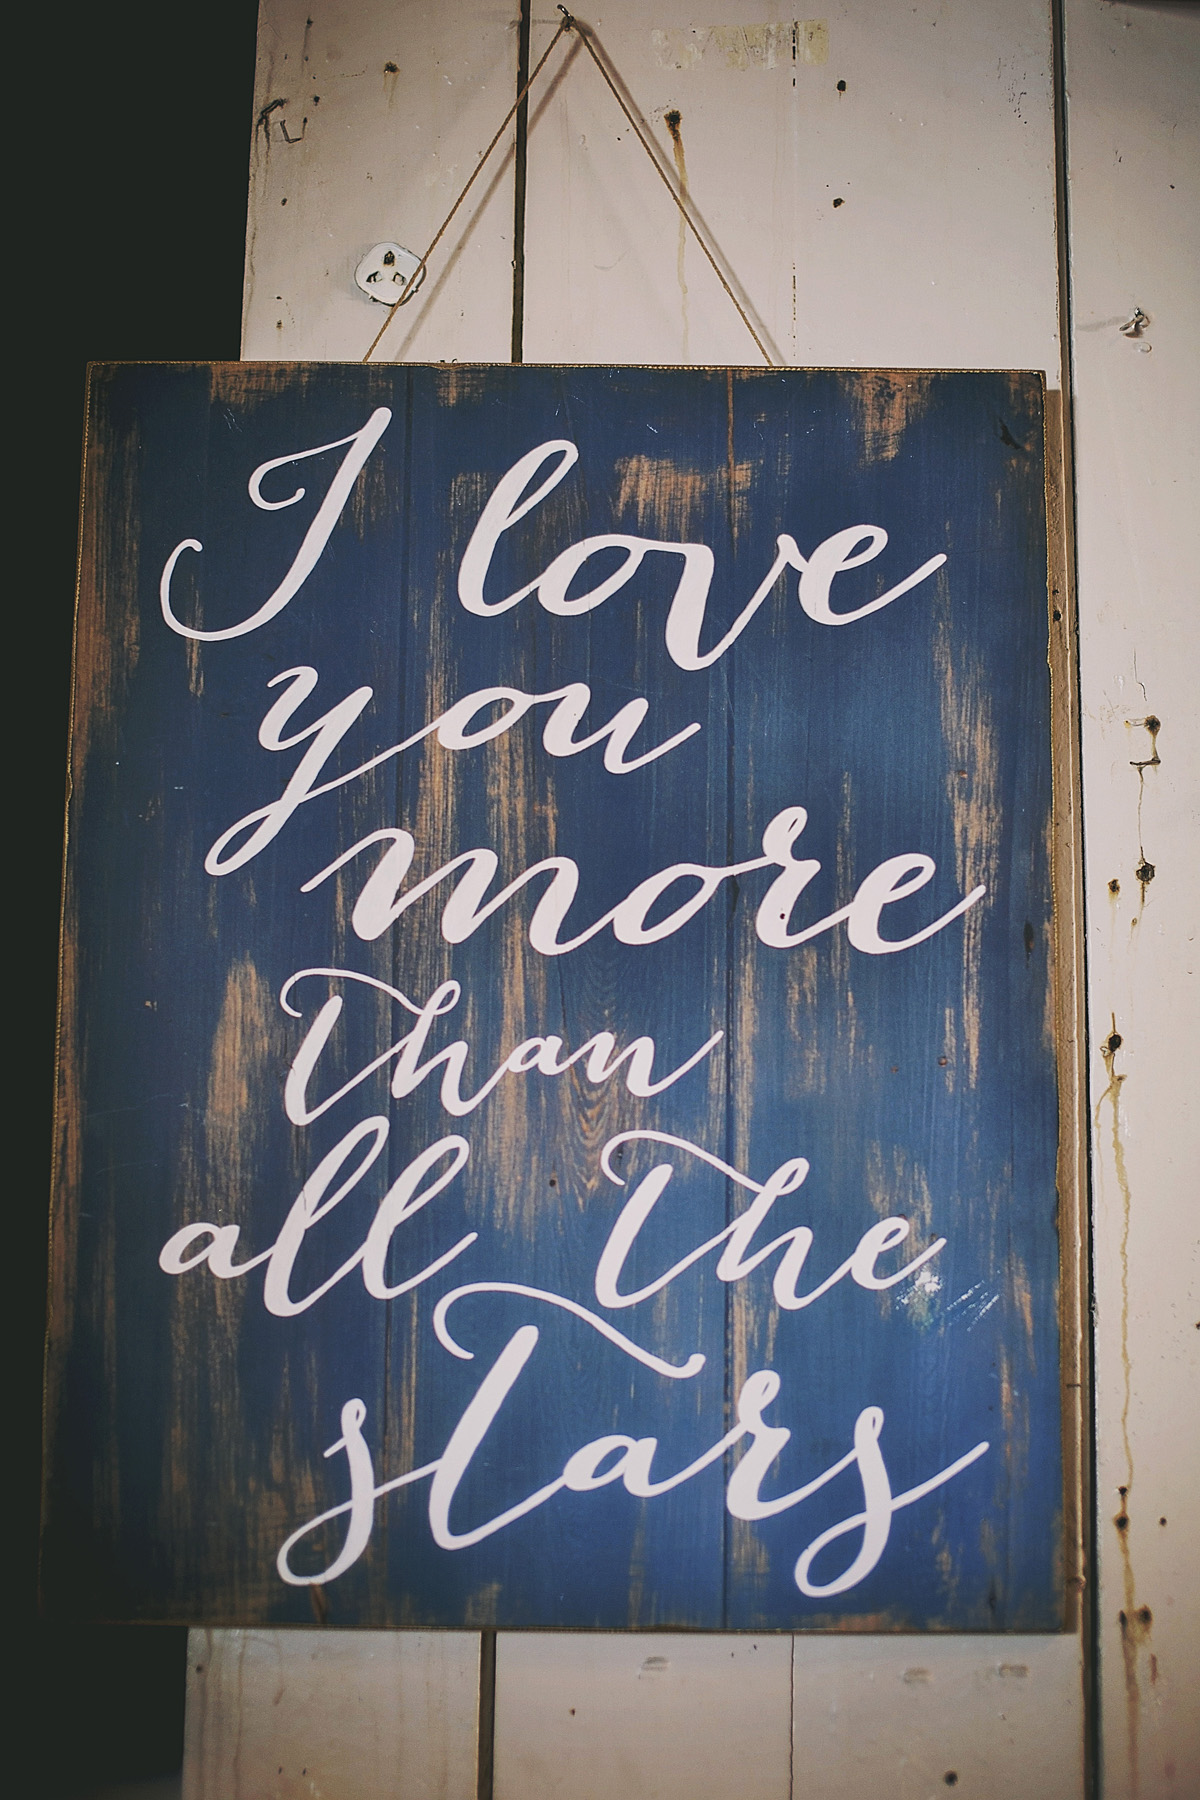 I love
you
more
than
all the
stars